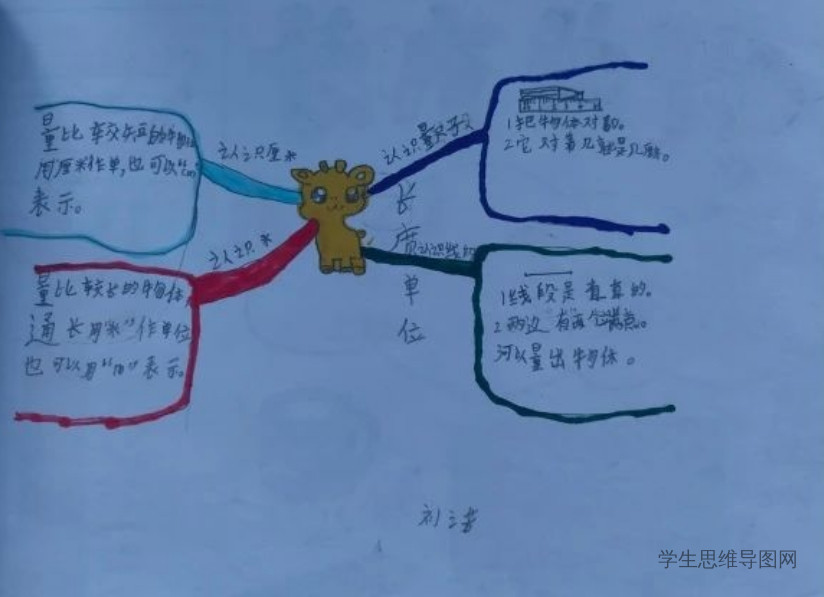 认识厘米
量比较短的物体
用厘米作单,也可以"cm"
表示。
认识米
量比较长的物体,
通长用"米"作单位
也可以用"m"表示。
长度单位
认识量尺子
1把物体对着0。
2它对第几就是几厘米。
认识线段
1线段是直直的。
2两边有两个端点。
可以量出物体。
学生思维导图网